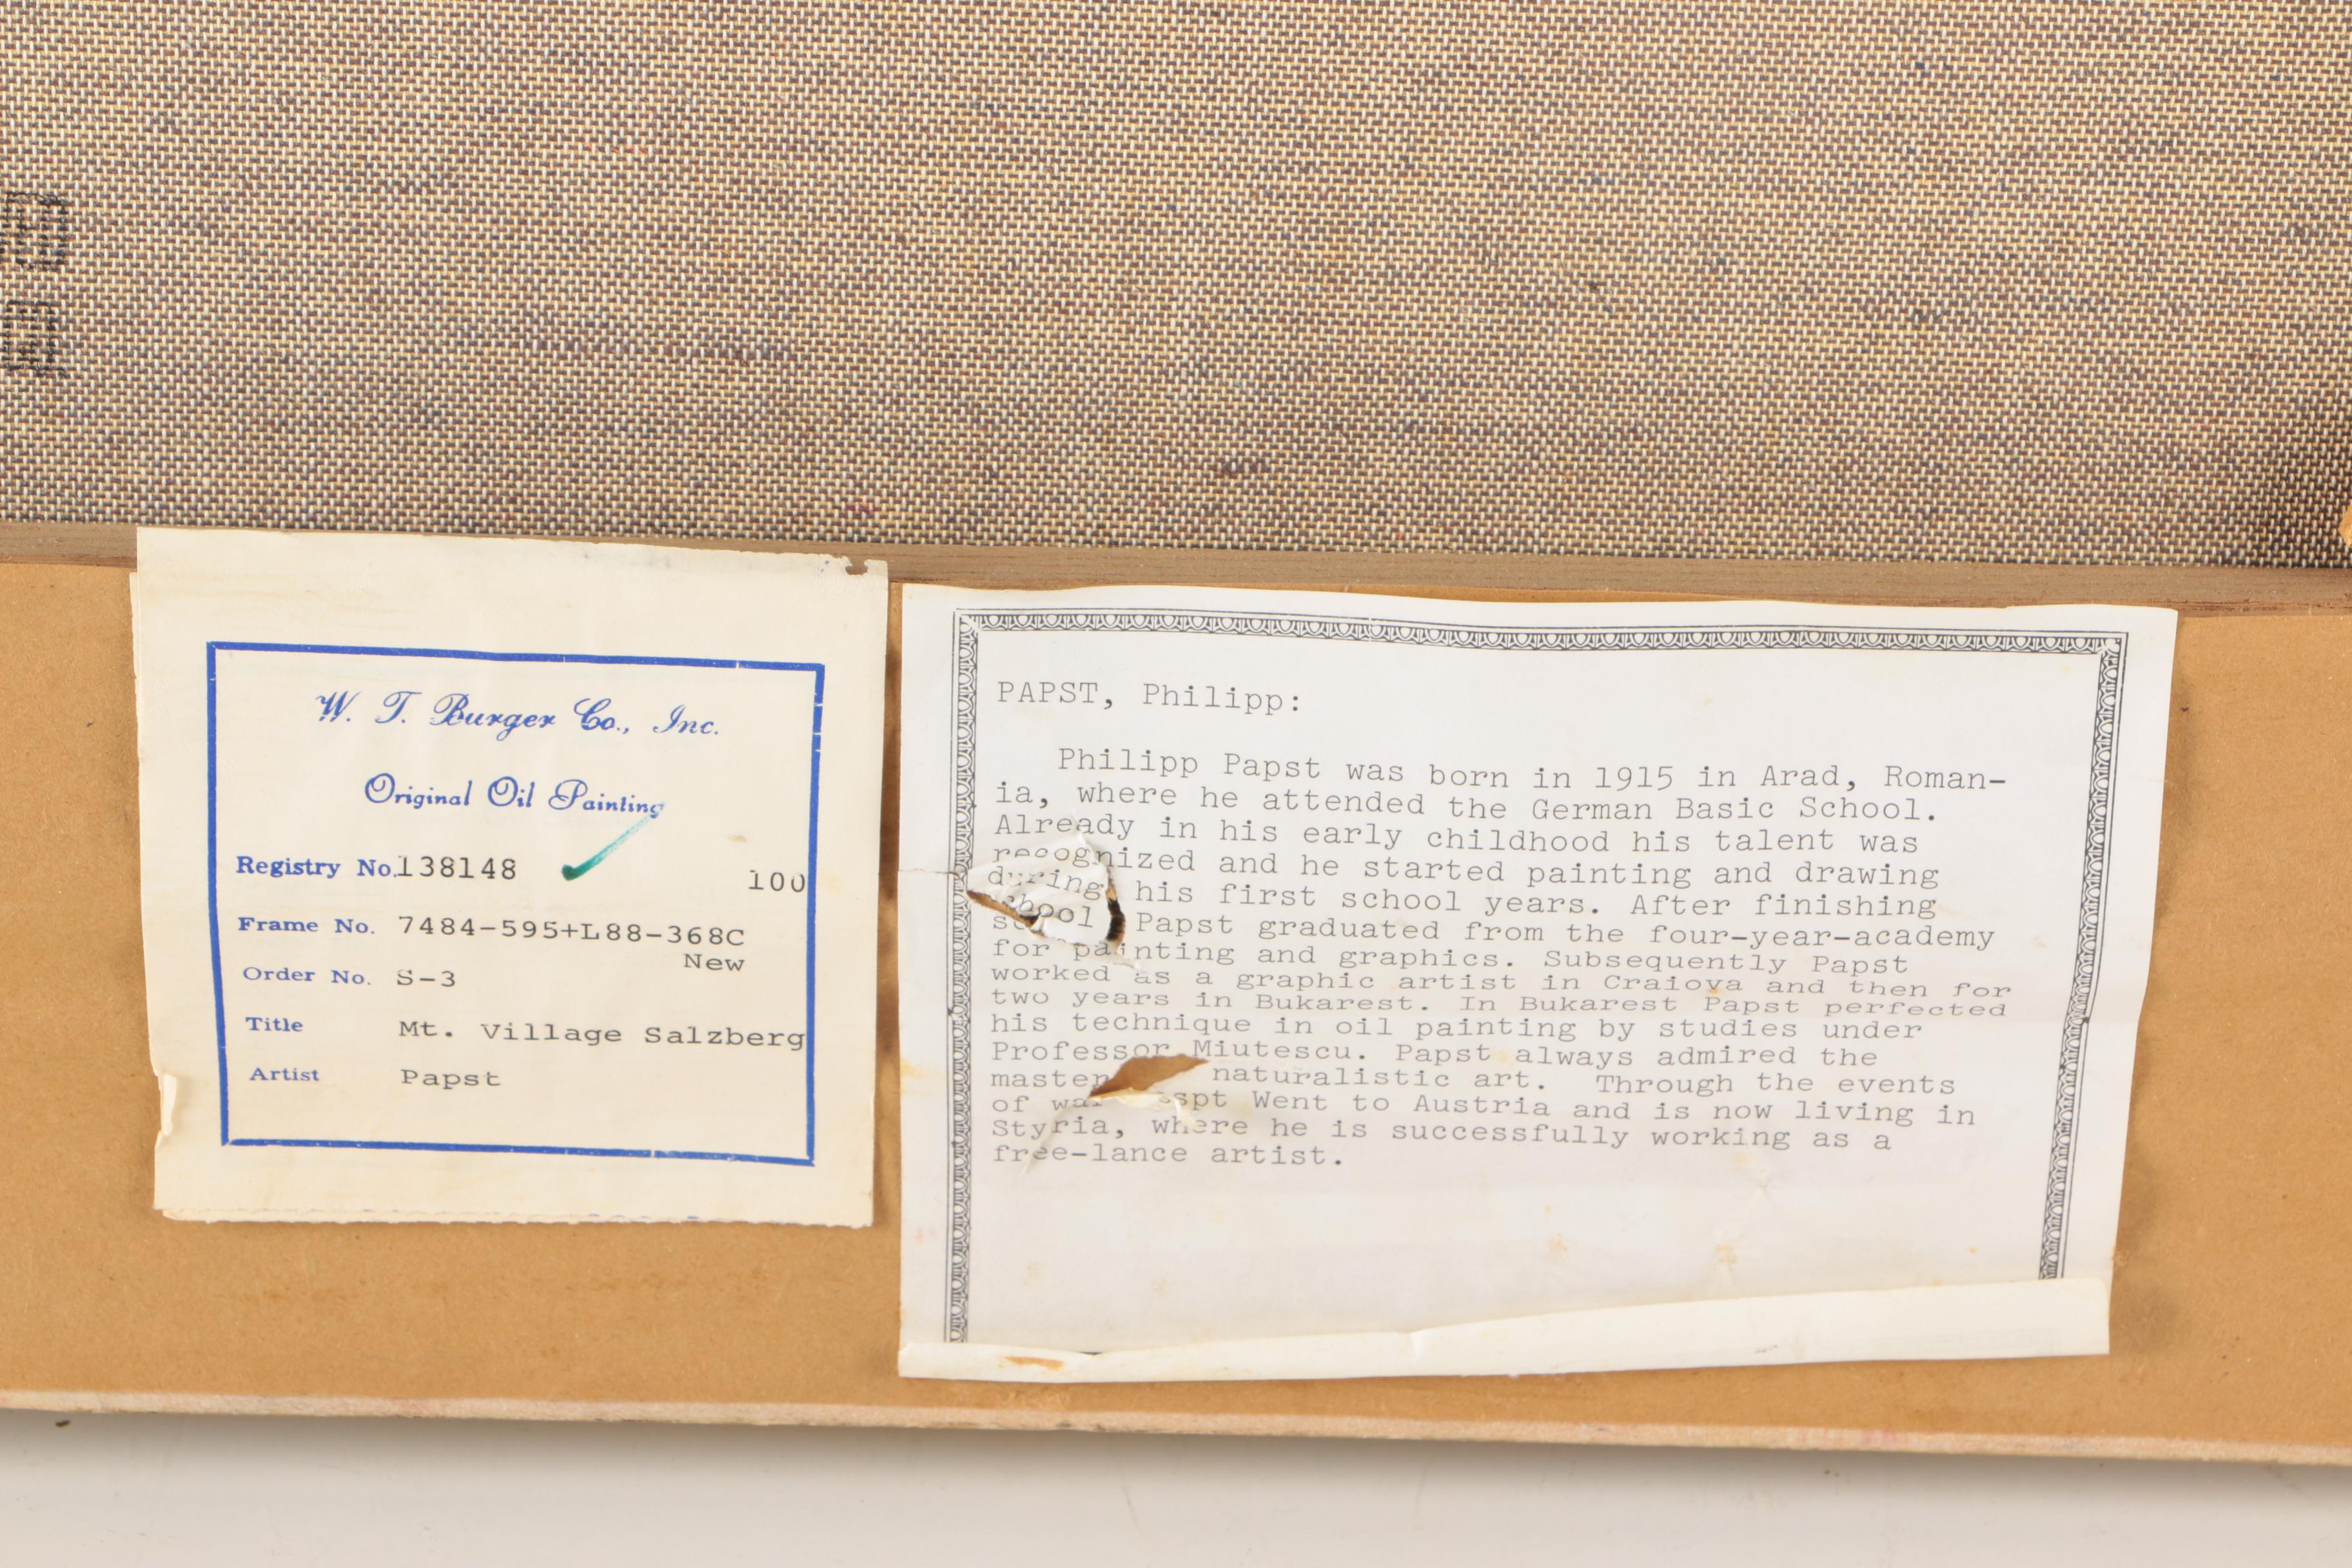 W. T. Burger Co., Inc.
Original Oil Painting
Registry No. 138148
100
Frame No. 7484-595+L88-368C
New
Order No. S-3
Title Mt. Village Salzberg
Artist Papst
PAPST, Philipp:
Philipp Papst was born in 1915 in Arad, Roman-
ia, where he attended the German Basic School.
Already in his early childhood his talent was
recognized and he started painting and drawing
during his first school years. After finishing
school Papst graduated from the four-year-academy
for painting and graphics. Subsequently Papst
worked as a graphic artist in Craiova and then for
two years in Bukarest. In Bukarest Papst perfected
his technique in oil painting by studies under
Professor Miutescu. Papst always admired the
naturalistic art. Through the events
of war Went to Austria and is now living in
Styria, where he is successfully working as a
free-lance artist.